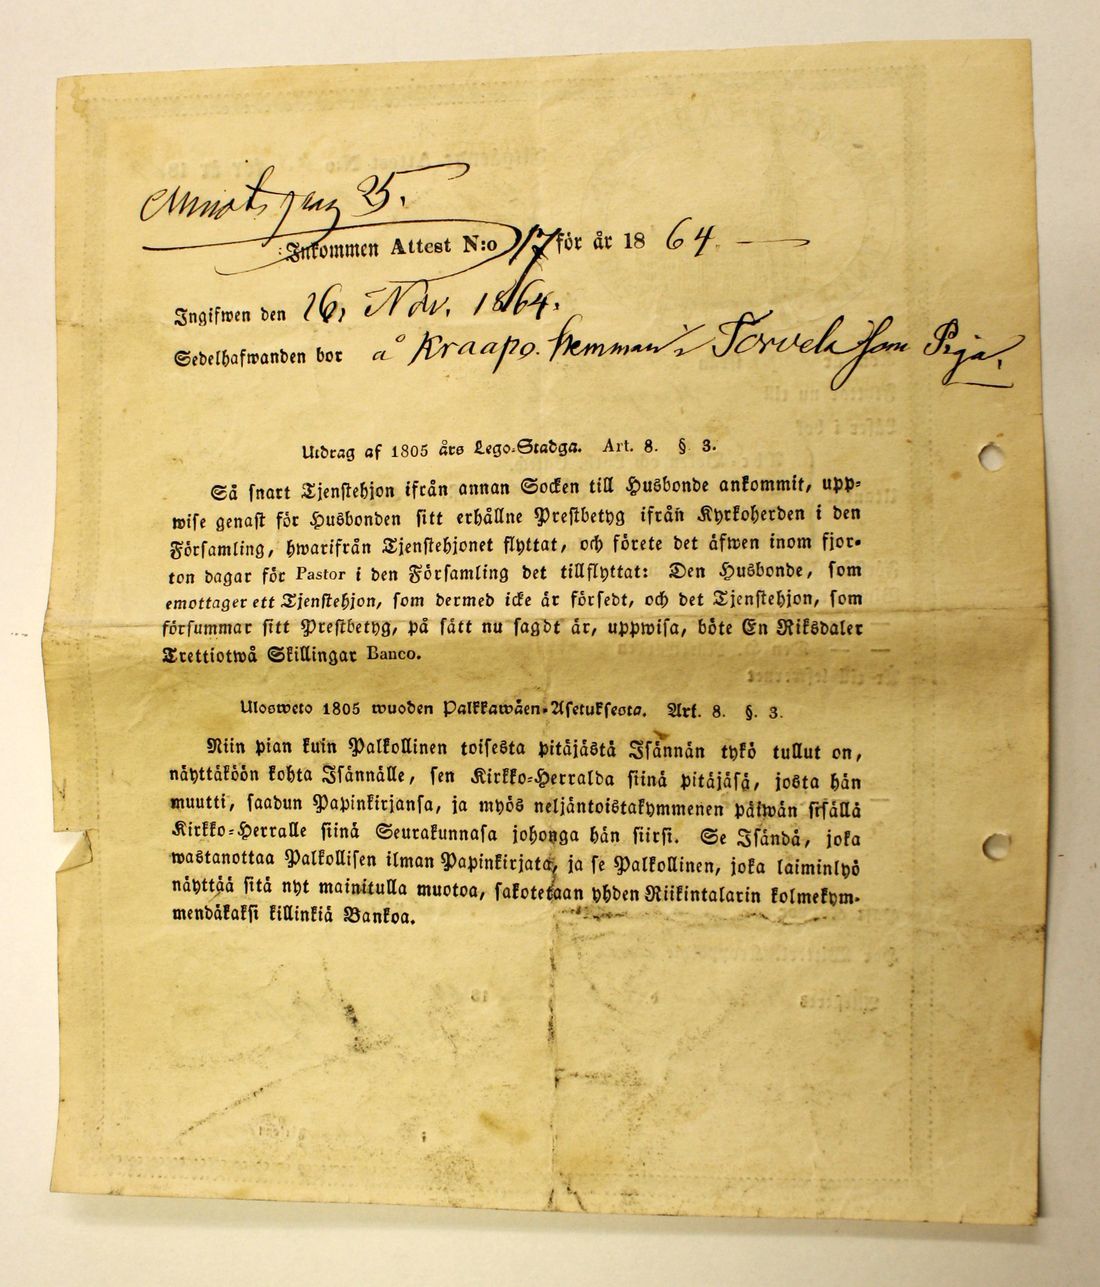 pag 25.
Inkommen Attest N:o 17 för år 18 64.
Ingifwen den 16, Nov. 1864.
Sedelhafwanden bor å Kraapo. hemman i Torvela som Piga.
Utdrag af 1805 års Lego-Stadga. Art. 8. § 3.
Så snart Tjenstehjon ifrån annan Socken till Husbonde ankommit, upp-
wise genast för Husbonden sitt erhållne Prestbetyg ifrån Kyrkoherden i den
Församling, hwarifrån Tjenstehjonet flyttat, och förete det äfwen inom fjor-
ton dagar för Pastor i den Församling det tillflyttat: Den Husbonde, som
emottager ett Tjenstehjon, som dermed icke är försedt, och det Tjenstehjon, som
försummar sitt Prestbetyg, på sätt nu sagdt är, uppwisa, böte En Riksdaler
Trettiotwå Skillingar Banco.
Ulosweto 1805 wuoden Palkkawäen-Asetuksesta. Art. 8. §. 3.
Niin pian kuin Palkollinen toisesta pitäjästä Isännän tykö tullut on,
näyttäköön kohta Isännälle, sen Kirkko-Herralda siinä pitäjäsä, josta hän
muutti, saadun Papinkirjansa, ja myös neljäntoistakymmenen päiwän sisällä
Kirkko-Herralle siinä Seurakunnasa johonga hän siirsi. Se Isändä, joka
wastanottaa Palkollisen ilman Papinkirjata, ja se Palkollinen, joka laiminlyö
näyttää sitä nyt mainitulla muotoa, sakotetaan yhden Riikintalarin kolmekym-
mendäkaksi killinkiä Bankoa.